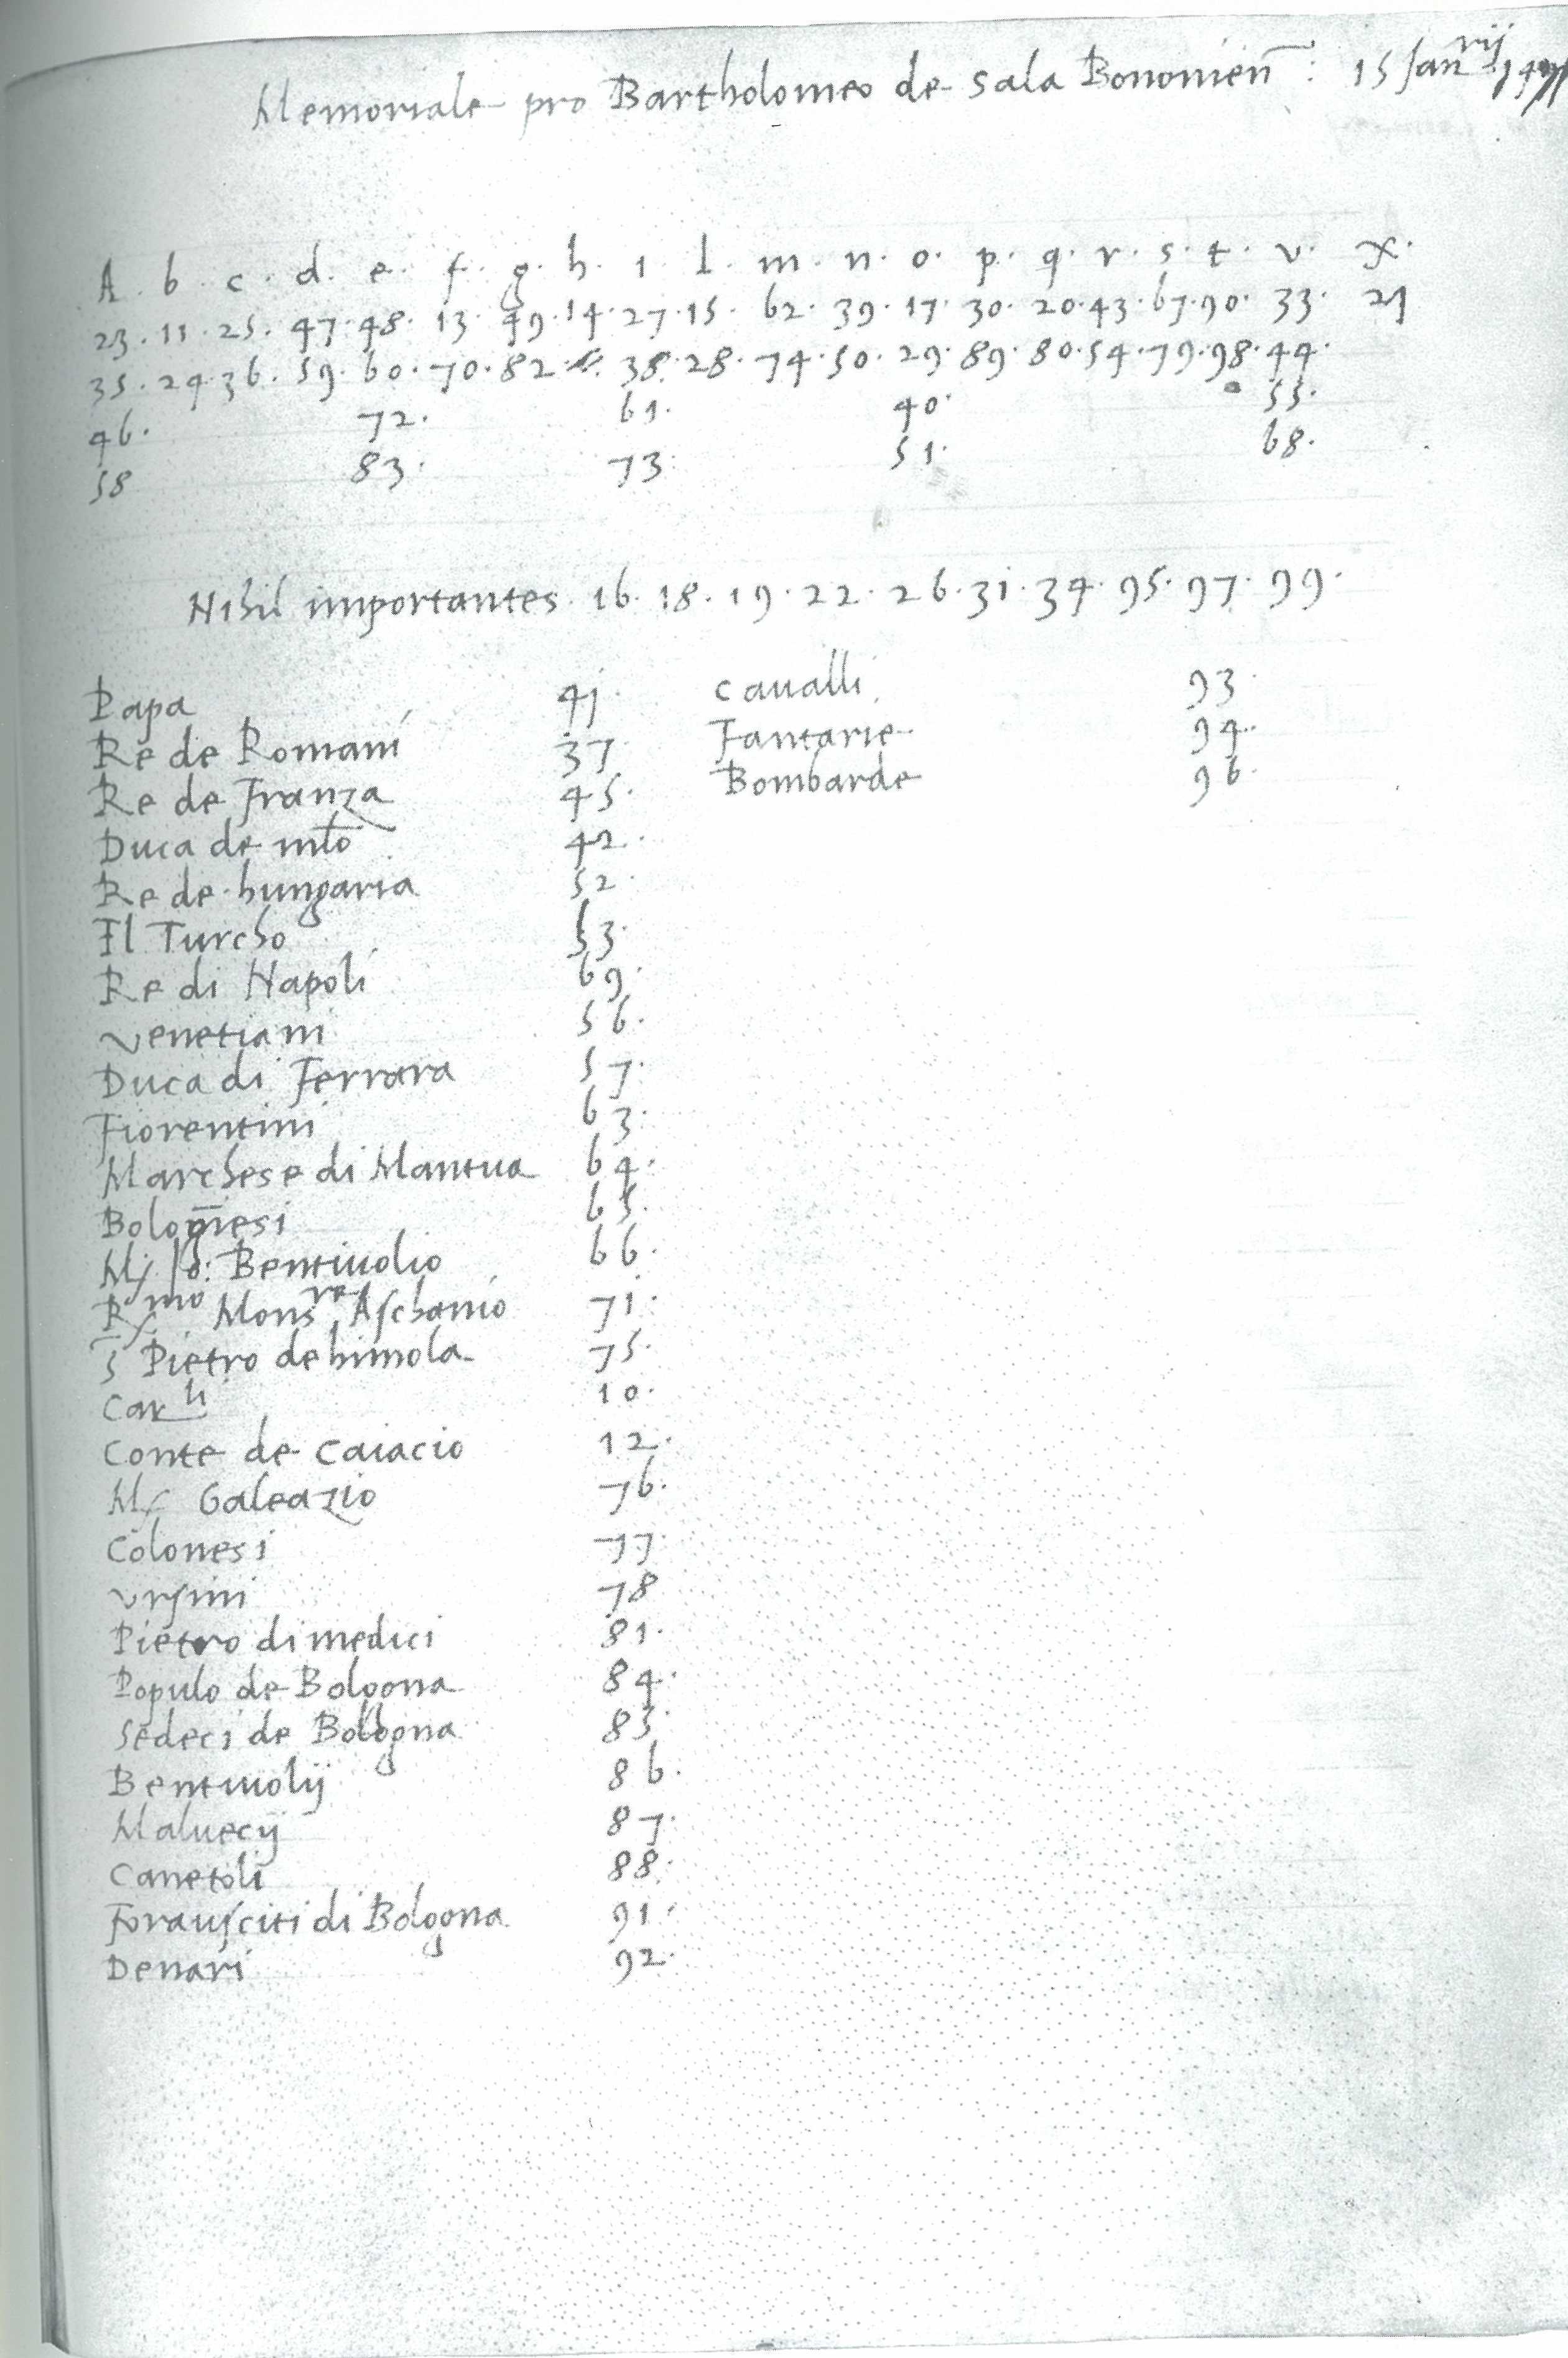 Memoriale pro Bartholomeo de Sala Bononien̄ : 15 Jan^rij
A . b . c . d . e . f . g . h . i . l . m . n . o . p . q . r . s . t . v . x .
23 . 11 . 25 . 47 . 48 . 13 . 49 . 14 . 27 . 15 . 62 . 39 . 17 . 30 . 20 . 43 . 67 . 90 . 33 . 21
35 . 24 . 36 . 59 . 60 . 70 . 82 . 38 . 28 . 74 . 50 . 29 . 89 . 80 . 54 . 79 . 98 . 44 .
46 . 72 . 61 . 40 . 55 .
58 83 . 73 . 51 . 68 .
Nihil importantes . 16 . 18 . 19 . 22 . 26 . 31 . 34 . 95 . 97 . 99 .
Papa 41 . cavalli 93 .
Re de Romani 37 Fantarie 94 .
Re de Franza 45 . Bombarde 96 .
Duca de mlō 42 .
Re de hungaria 52 .
Il Turcho 53 .
Re di Napoli 69 .
venetiani 56 .
Duca di Ferrara 57 .
Fiorentini 63 .
Marchese di Mantua 64 .
Bologn̄esi 65 .
Mſ Jo: Bentiuolio 66 .
R^mo Mons^re Aschanio 71 .
s̄ Pietro de himola 75 .
Car^li 10 .
Conte de Caiacio 12 .
Mſ Galeazio 76 .
Colonesi 77 .
vrsini 78
Pietro di medici 81 .
Populo de Bologna 84 .
Sedeci de Bologna 85
Bentiuolij 86 .
Maluecij 87 .
Canetoli 88 .
Forausciti di Bologna 91 .
Denari 92 .